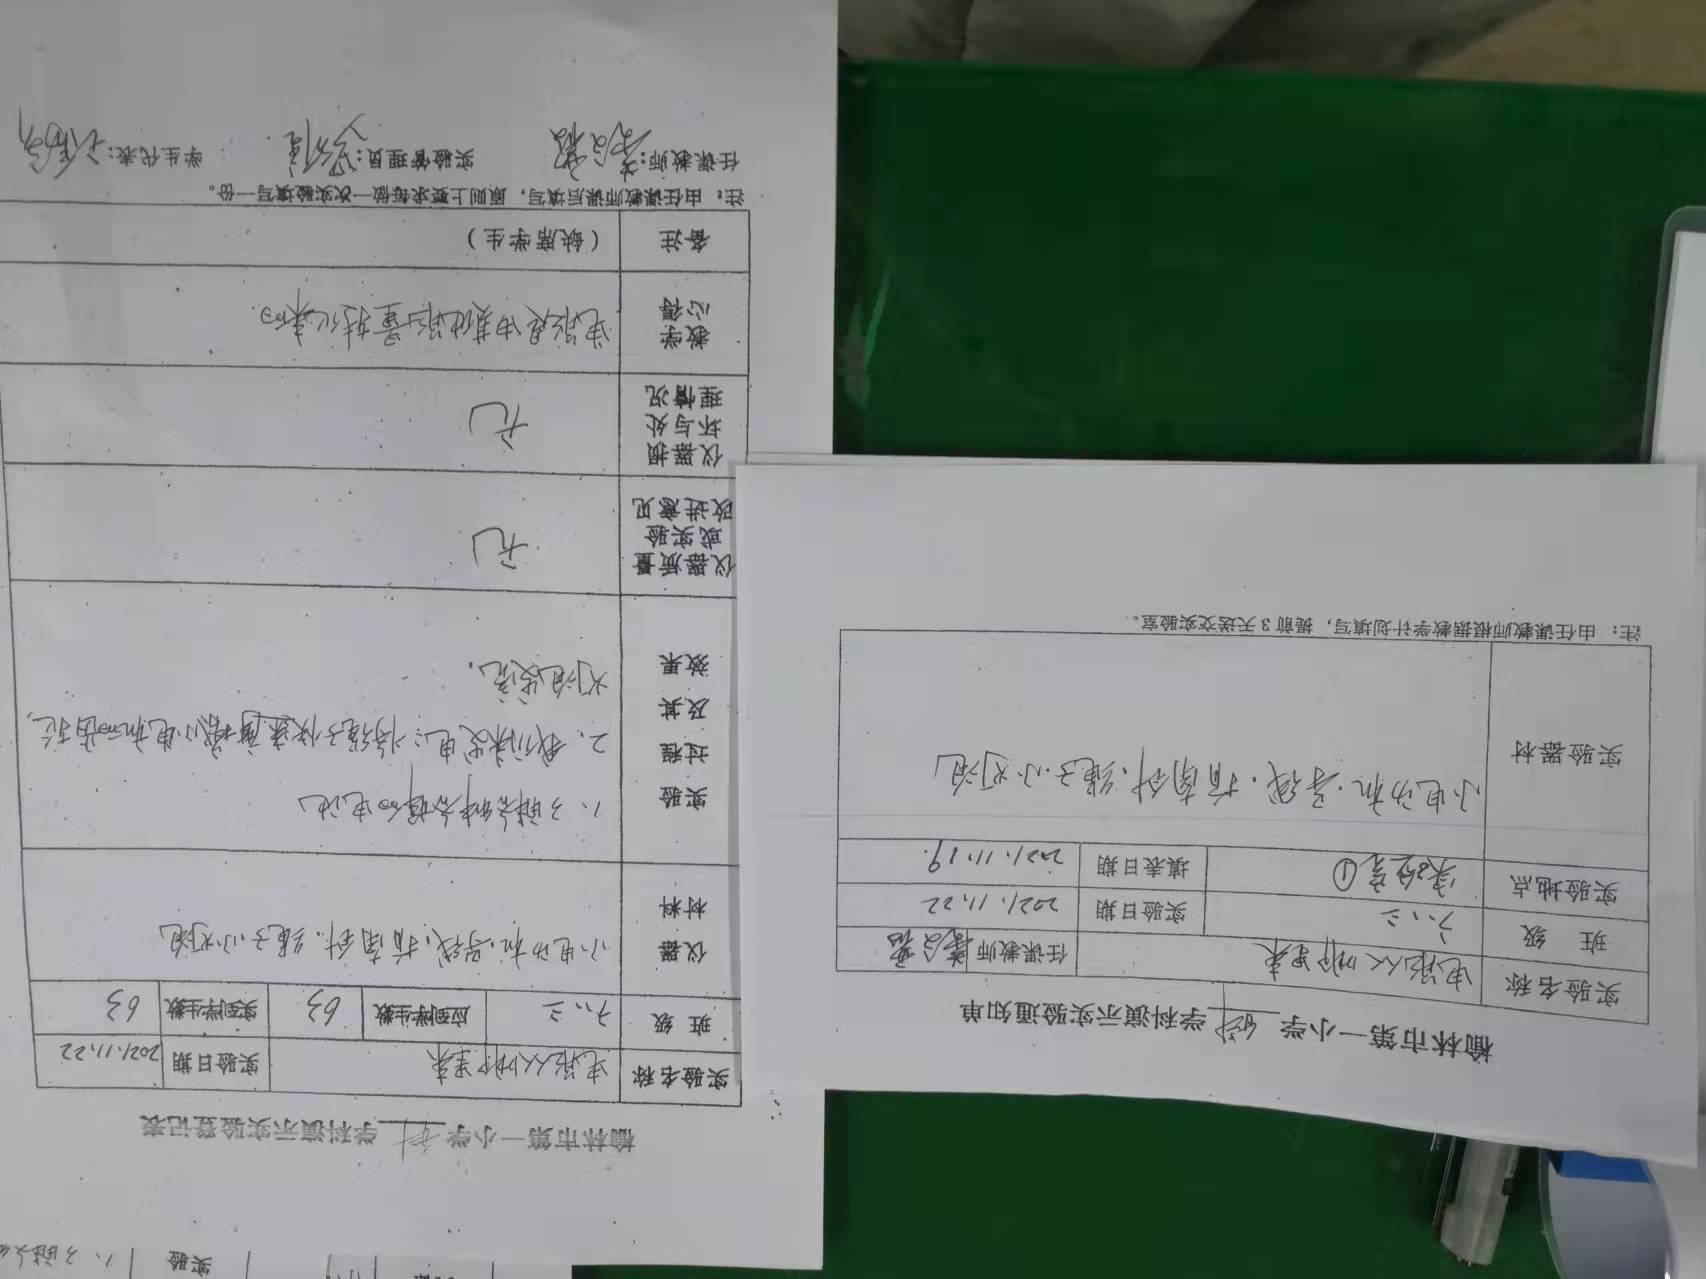 榆林市第一小学 科 学科演示实验登记表
实验名称 电能从哪里来 实验日期 2021.11.22
班 级 六、三 应到学生数 63 实到学生数 63
仪器 材料 小电动机、导线、指南针、绳子、小灯泡
实验 过程 及其 效果
1、了解各种各样的电池
2、我们来发电:将绳子快速摩擦小电机的齿轮,
灯泡发亮。
仪器质量 或实验 改进意见 无
仪器损 坏与处 理情况 无
教学 心得 电能是由其他能量转化来的.
备注 (缺席学生)
注:由任课教师课后填写,原则上要求每做一次实验填写一份。
任课教师: 实验管理员: 学生代表:
榆林市第一小学 科学 学科演示实验通知单
实验名称 电能从哪里来 任课教师
班 级 六、三 实验日期 2021.11.22
实验地点 实验室① 填表日期 2021.11.19.
实验器材 小电动机、导线、指南针、绳子、小灯泡
注:由任课教师根据教学计划填写,提前3天送交实验室。
实验 1、了解